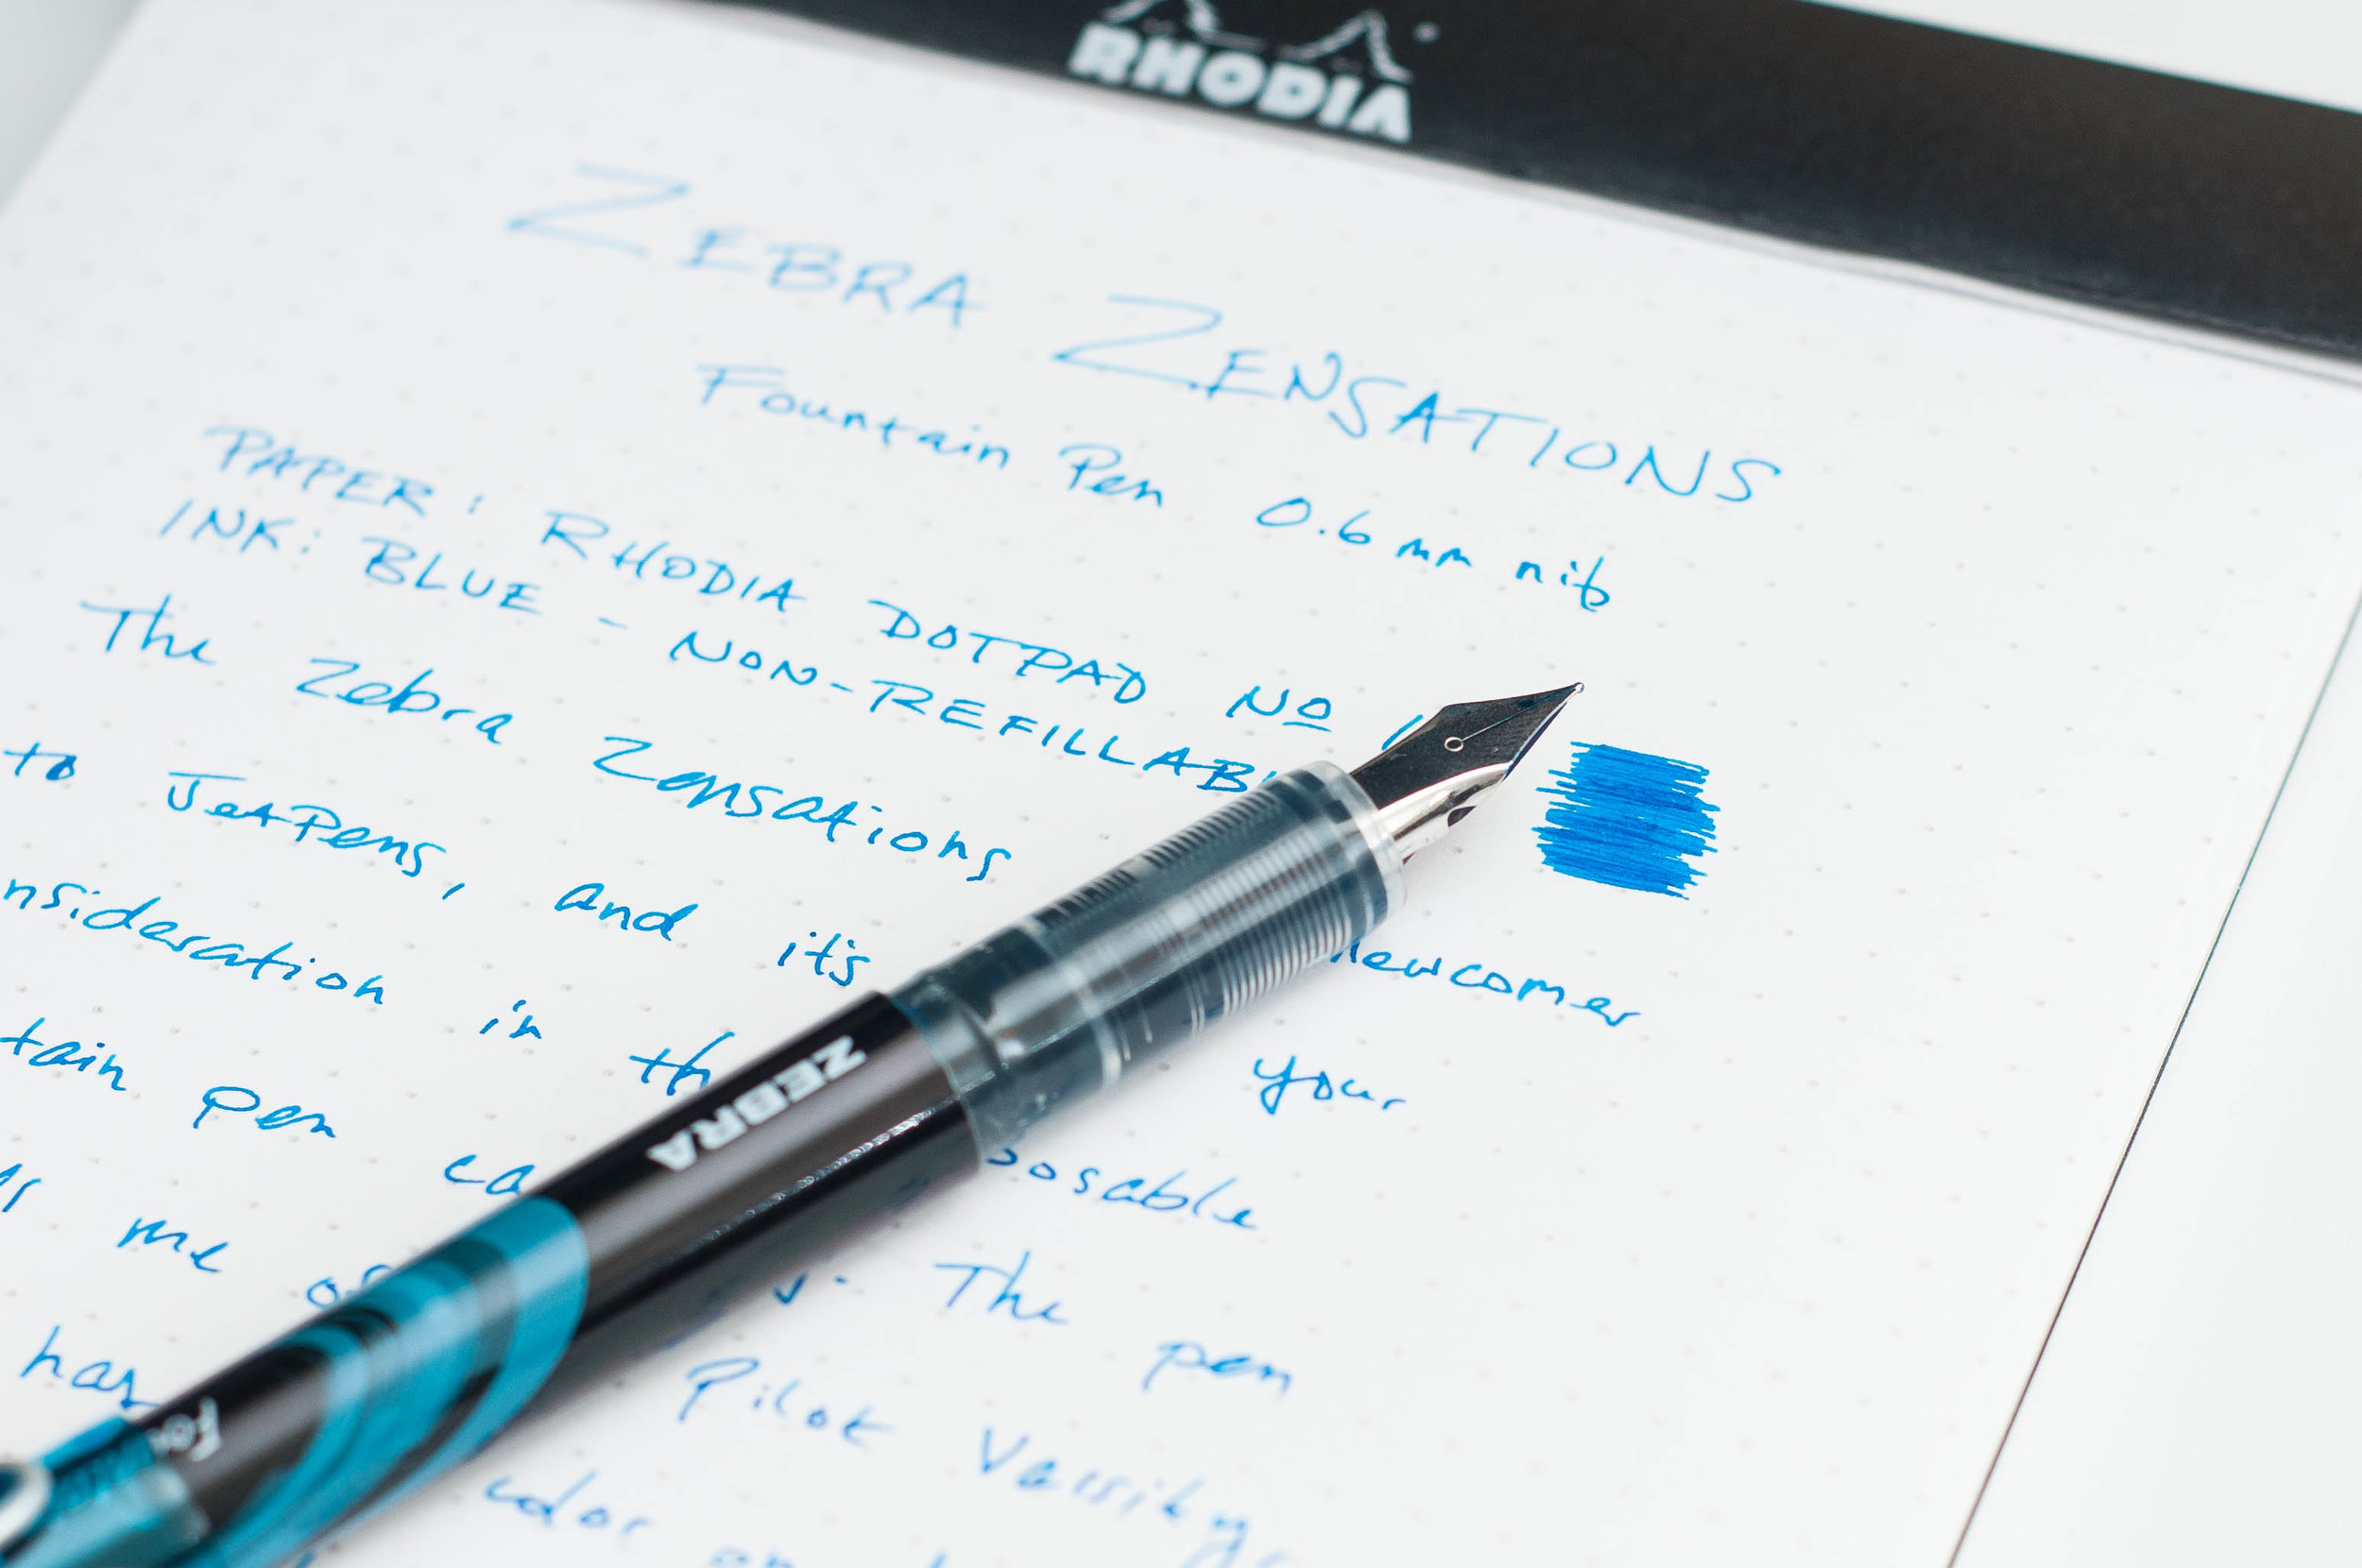 RHODIA
ZEBRA ZENSATIONS
Fountain Pen 0.6mm nib
PAPER: RHODIA DOTPAD No
INK: BLUE - NON-REFILLAB
The Zebra Zensations
to JetPens, and it's newcomer
nsideration in th your
tain pen ca posable
me of The pen
has Pilot Varsity
color on
ZEBRA